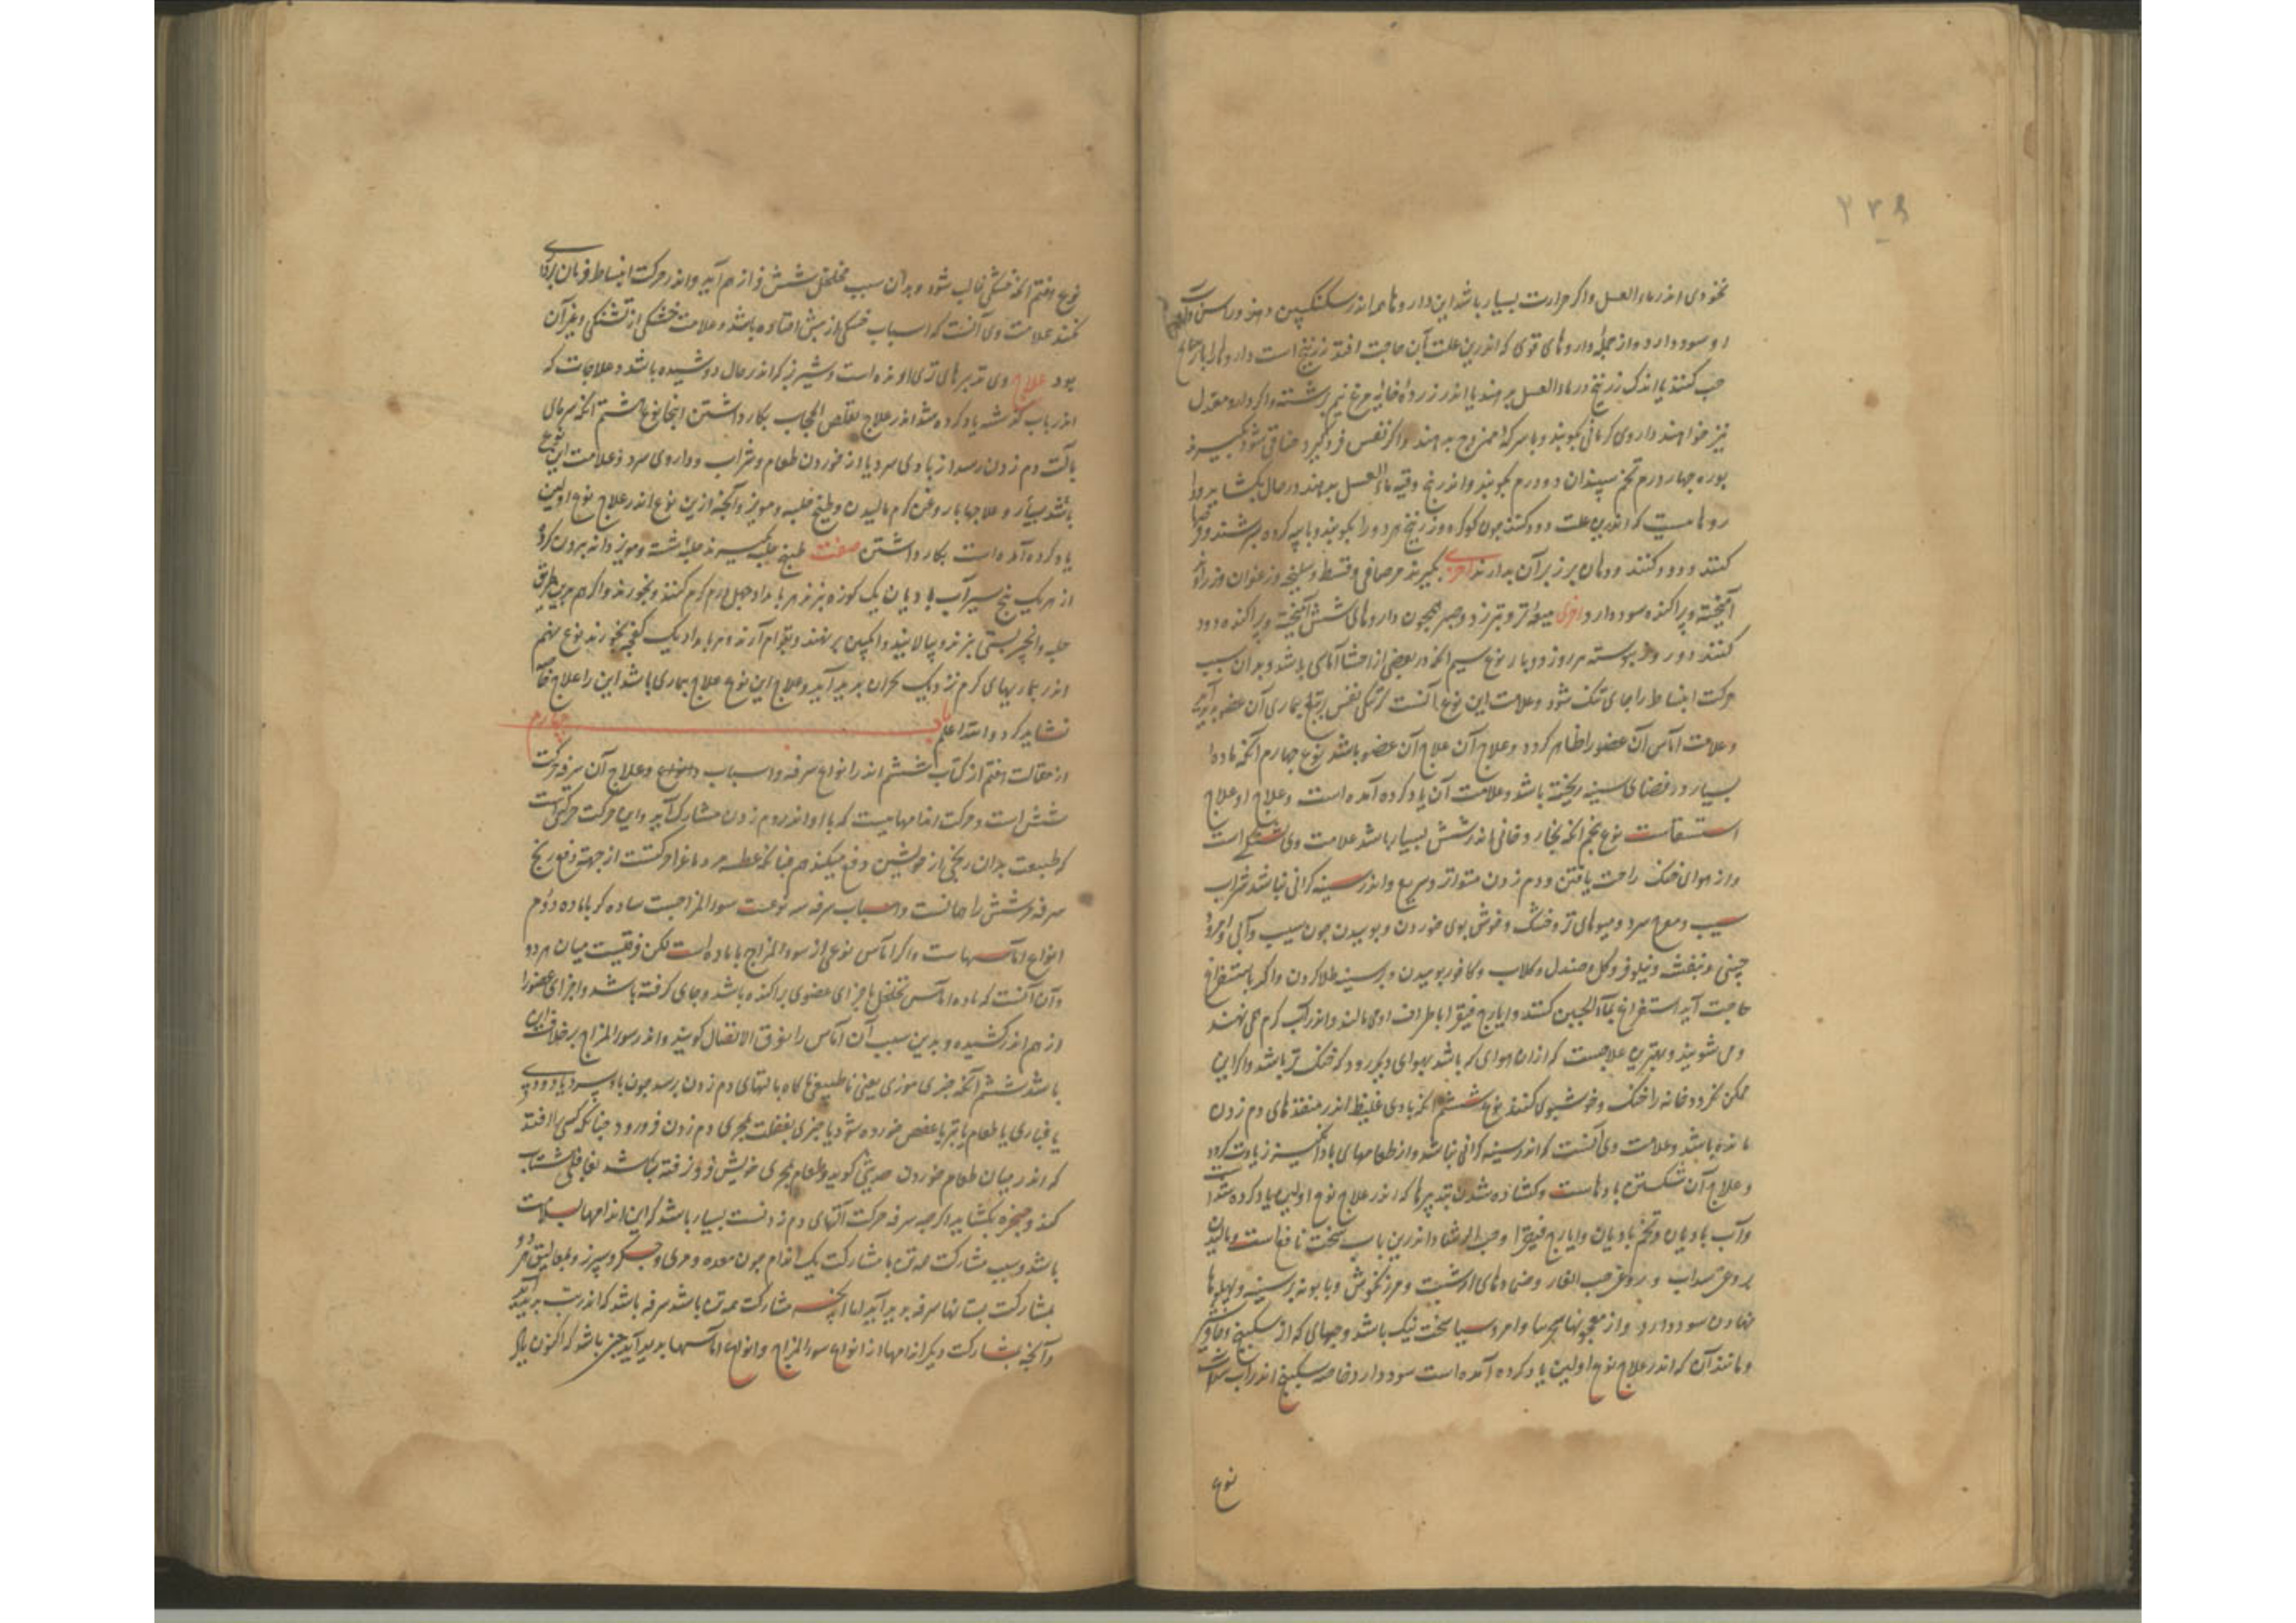 ۲۳۹
نخودی اندر ماء العسل و اکر حرارت بسیار باشد این داروها همه اندر سکنکبین دهند و
او سود دارد و از جمله داروهای قوی که اندرین علت بدان حاجت افتد زرنیخ است داروها را با
حب کنند یا اندک زرنیخ در ماء العسل بدهند یا اندر زرده خایه مرغ نیم برشته و اکر دارو معتدل
نیز خواهند داروی کرمانی بکوبند و با سرکه ممزوج بدهند و اکر نفس فرو کیرد و خناقی شود بکیرند
بوره چهار درم تخم سپندان دو درم بکوبند و اندر پنج وقیه ماء العسل بدهند در حال بکشاید و دا
روهاست که اندرین علت دود کنند چون کوکرد و زرنیخ هر دو را بکوبند و با پیه کرده بسرشند و
کنند و دود کنند و دهان بر زبر آن بدارند اخری بکیرند مر صافی و قسط و سلیخه و زعفران و
آمیخته و پراکنده سود دارد اخری میعه تر و و صبر همچون داروهای شش آمیخته و پراکنده دود
کنند و پیوسته هر روز دو بار نوع سیم آنکه در بعضی از احشا آماسی باشد و بدان سبب
حرکت انبساط را جای تنک شود و علامت این نوع آنست که تنکی نفس بتبع بیماری آن عضو پدید آید
و علامت اماس آن عضو را ظاهر کردد و علاج آن علاج آن عضو باشد نوع چهارم آنکه ماده
بسیار در فضای سینه ریخته باشد و علامت آن یاد کرده آمده است و علاج او علاج
استسقاست نوع پنجم آنکه بخار دخانی اندر شش بسیار باشد علامت وی تشنکی است
و از هوای خنک راحت یافتن و دم زدن متواتر و سریع و اندر سینه کرانی نباشد شراب
سیب و سرد و میوهای تر و خنک و خوش بوی خوردن و بوییدن چون سیب و آبی و امرود
چینی و بنفشه و نیلوفر و کل و صندل و کلاب و کافور بوییدن و بر سینه طلا کردن و اکر باستفراغ
حاجت آید استفراغ بماء الجبن کنند و ایارج فیقرا با طراف او می مالند و اندر آب کرم می نهند
و می شویند و بهترین علاجست که از ان هوای که باشد بهوای دیکر رود که خنک تر باشد و اکر این
ممکن نکردد خانه را خنک و خوشبوی کنند نوع ششم آنکه بادی غلیظ اندر منفذهای دم زدن
مانده باشد و علامت وی آنست که اندر سینه کرانی نباشد و از طعامهای باد انکیز زیادت کردد
و علاج آن شکستن بادهاست و کشاده شدن بتدبیرها که اندر علاج نوع اولین یاد کرده شد
و آب بادیان و تخم بادیان و ایارج فیقرا و حب الرشاد اندرین باب سخت نافع است و مالیدن
روغن سداب و روغن حب الغار و ضمادهای از شبت و مرزنکوش و بابونه بر سینه و پهلوها
نهادن سود دارد و از معجونها سجزینا و امروسیا سخت نیک باشد و حبهای که از سکبینج و جاوشیر
و مانند آن که اندر علاج نوع اولین یاد کرده آمده است سود دارد خاصه سکبینج اندر آب سداب
نوع
نوع هفتم آنکه خشکی غالب شود و بدان سبب تخلخل شش فراز هم آید و اندر حرکت انبساط فرمان برداری
نکند علامت وی آنست که اسباب خشکی از پیش افتاده باشد و علامت خشکی از تشنکی و غیر آن
بود علاج وی تدبیرهای تری افزاست و شیر بز که اندر حال دوشیده باشد و علاجات که
اندر باب کذشته یاد کرده شد اندر علاج تقلص الحجاب بکار داشتن اینجا نوع هشتم آنکه سرمای
بآلت دم زدن رسد از بادی سرد یا از خوردن طعام و شراب و داروی سرد و علامت این نوع
باشد بسیار و علاجها بار وغن کرم مالیدن و طبیخ حلبه و مویز و آنچه ازین نوع اندر علاج نوع اولین
یاد کرده آمده است بکار داشتن صفت طبیخ حلبه بکیرند حلبه شسته و مویز دانه بیرون کرده
از هر یک پنج سیر آب بادیان یک کوزه بپزند هر بامداد چهل درم کرم کنند و بخورند و اکر هم برین طریق
حلبه و انجیر بستی بپزند و بپالایند و انکبین بر نهند و بقوام آرند و هر بامداد یک کفچه بخورند نوع نهم
اندر بیماریهای کرم نزدیک بحران پدید آید و علاج این نوع علاج بیماری باشد این را علاج خاصه
نشاید کرد و الله اعلم باب چهارم
از مقالت هفتم از کتاب ششم اندر انواع سرفه و اسباب و انواع و علاج آن سرفه حرکت
شش است و حرکت اندامهاییست که با او اندر دم زدن مشارک اند و این حرکت حرکتی است
که طبیعت بدان رنجی از خویشتن دفع میکند هم چنانکه عطسه مر دماغ را حرکتست از جهت دفع رنج
سرفه مر شش را همانست و اسباب سرفه سه نوعست سوء المزاجیست ساده که با ماده دوم
انواع اماسهاست و اکر اماس نوعی از سوء المزاج با ماده است لکن فرقیست میان هر دو
و آن آنست که ماده اماس بتخلخل اجزای عضوی پراکنده باشد و جای کرفته باشد و اجزای عضو را
از هم اندر کشیده و بدین سبب آن اماس را تفرق الاتصال کویند و اندر سوء المزاج برخلاف این
باشد ششم آنکه چیزی موذی یعنی ناطبیعی ناکاه بآلتهای دم زدن برسد چون باد سرد یا دودی
یا غباری یا طعام یا عفص خورده شود یا چیزی بغفلت بمجری دم زدن فرو رود چنانکه کسی را افتد
که اندر میان طعام خوردن حدیثی کوید و طعام بمجری خویش فرو رفته نباشد بغافلی شتاب
کند و حنجره بکشاید اکر چه سرفه حرکت آلتهای دم زدنست بسیار باشد که این اندامها بسلامت
باشد و سبب مشارکت همه تن یا مشارکت یک اندام چون معده و مری و جکر و سپرز و
بمشارکت پستانها سرفه پدید آید اما آنچه مشارکت همه تن باشد سرفه باشد که اندر تب پدید آید
و آنچه بمشارکت دیکر اندامها از انواع سوء المزاج و انواع اماسها پدید آید چیزی باشد که اکنون یاد